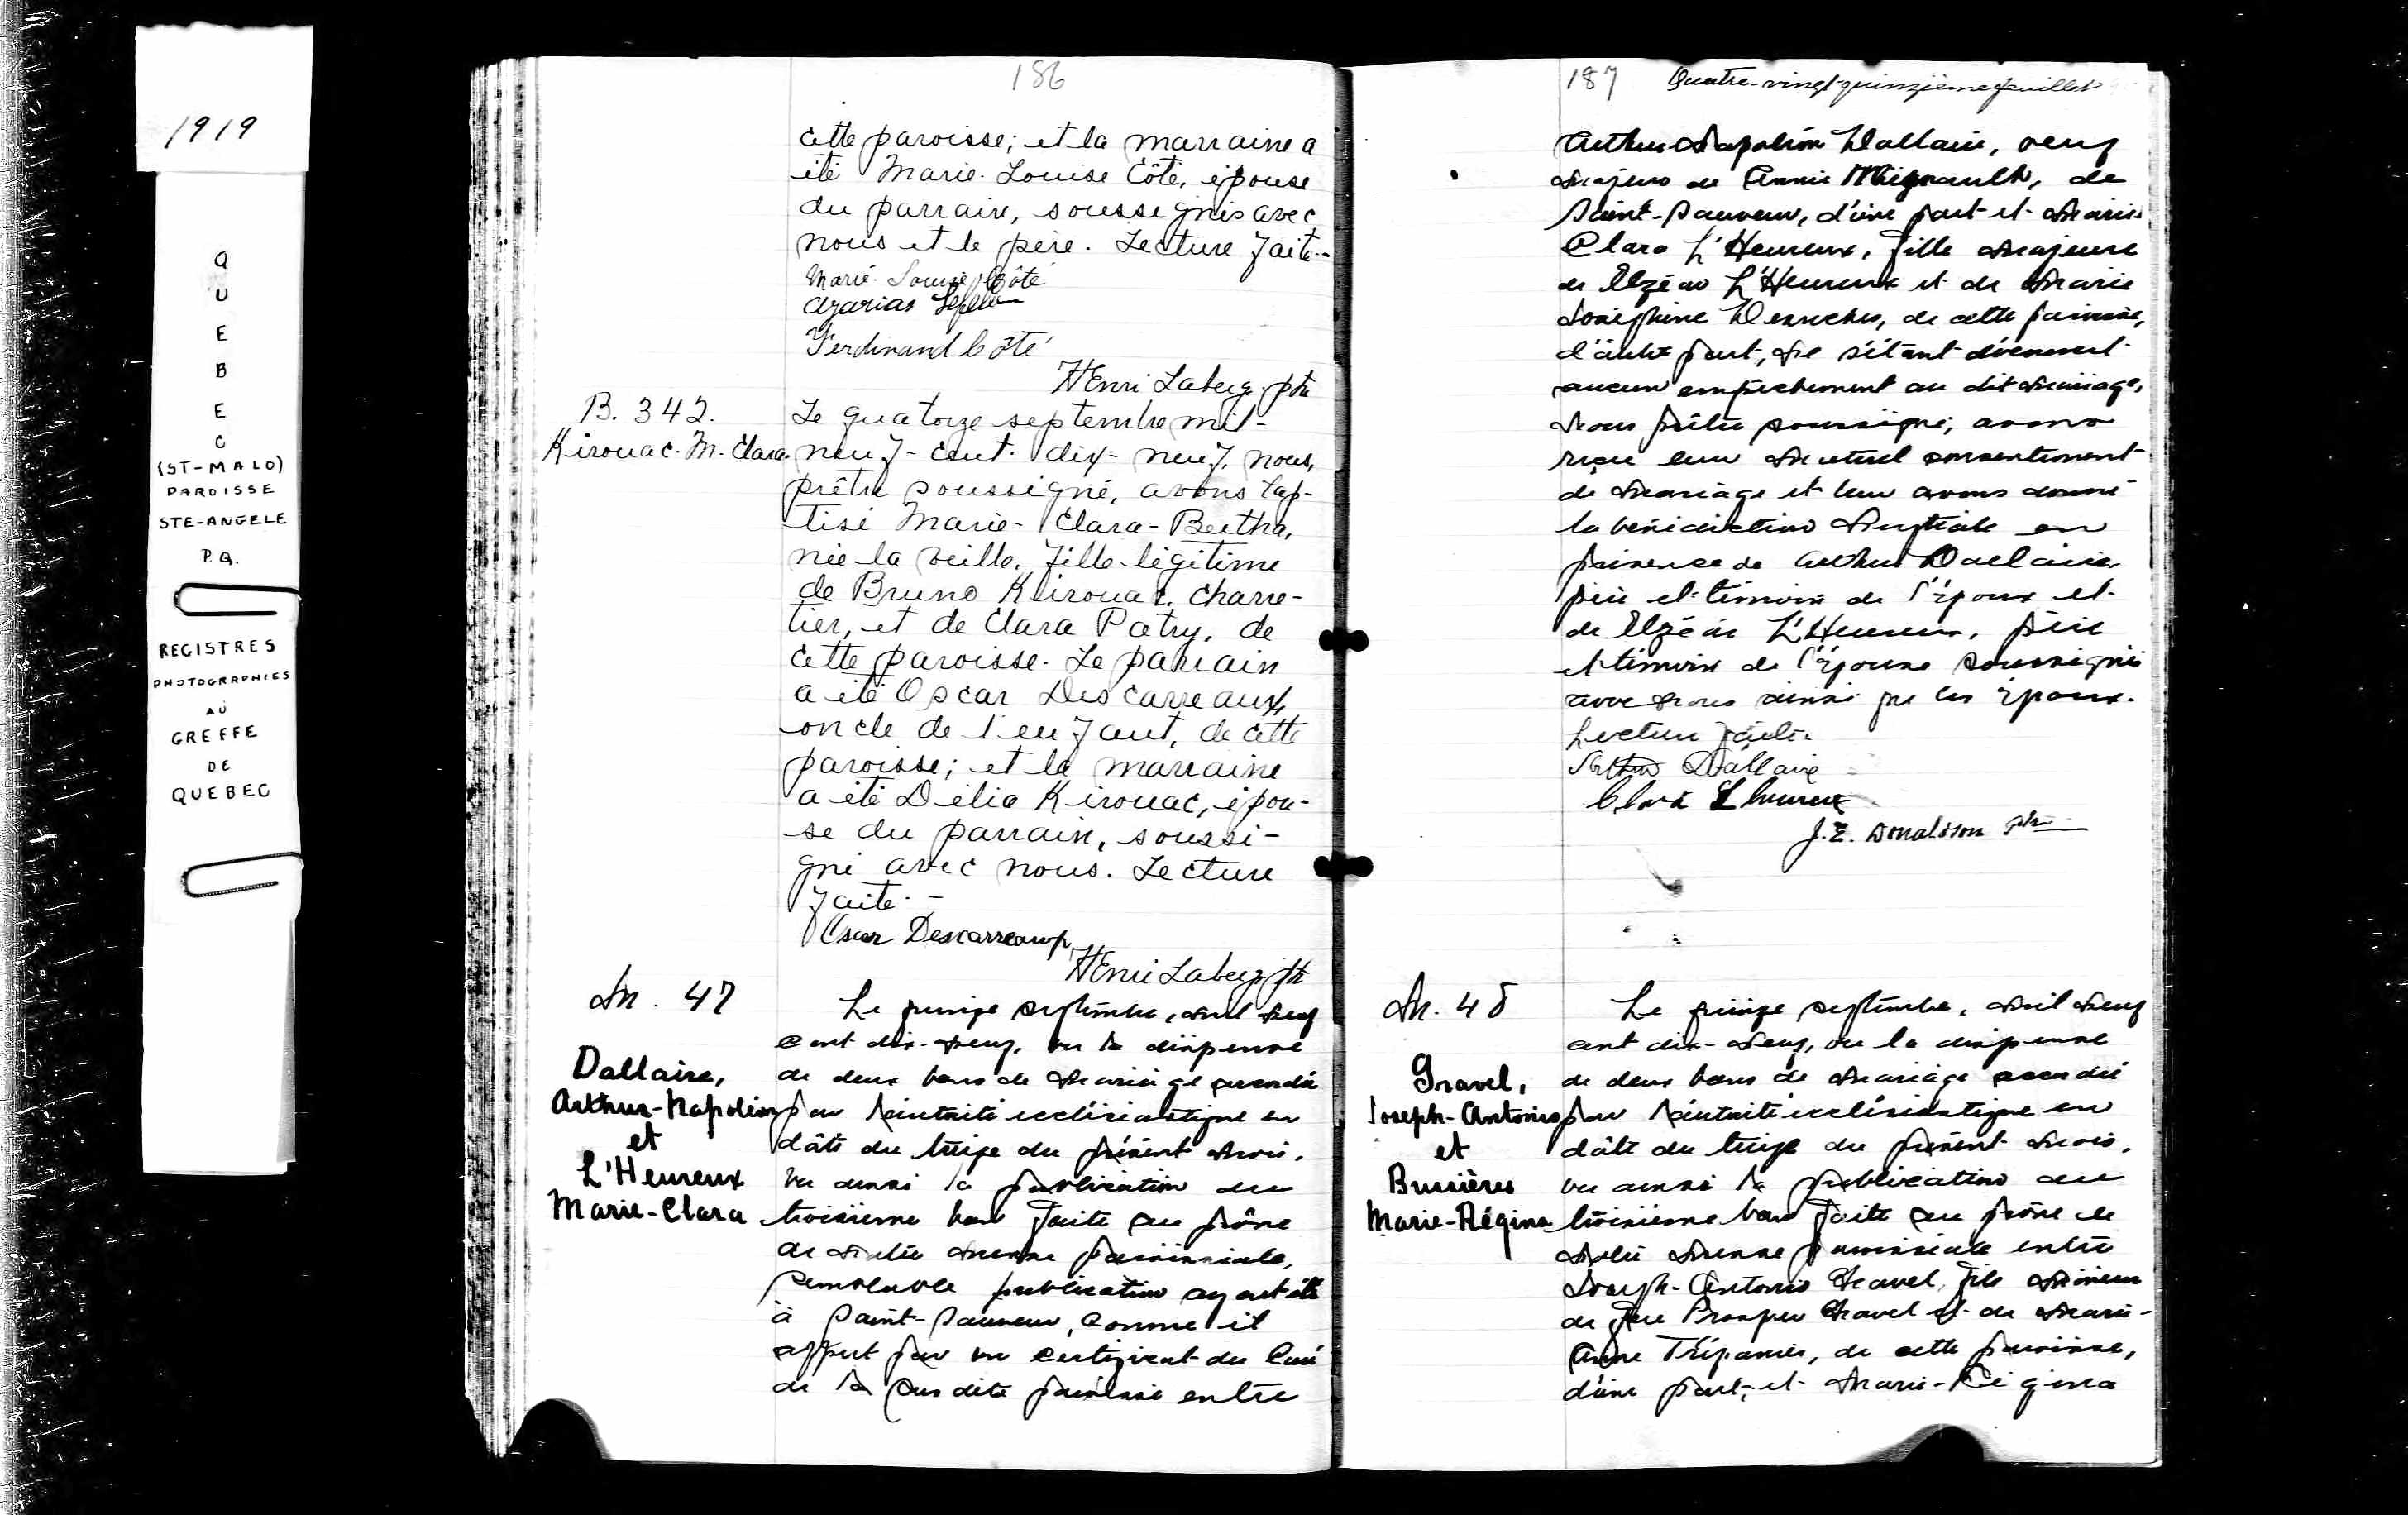 1919
QUEBEC
(ST-MALO)
PAROISSE
STE-ANGELE
P.Q.
REGISTRES
PHOTOGRAPHIES
AU
GREFFE
DE
QUEBEC
186
cette paroisse; et la marraine a
été Marie-Louise Côté, épouse
du parrain, soussignés avec
nous et le père. Lecture faite.-
Marie-Louise Côté
Azarias
Ferdinand Côté
Henri Laberge ptr
B. 342.
Kirouac. M. Clara.
Le quatorze septembre mil-
neuf-cent-dix-neuf, nous,
prêtre soussigné, avons bap-
tisé Marie-Clara-Bertha,
née la veille, fille légitime
de Bruno Kirouac, charre-
tier, et de Clara Patry, de
cette paroisse. Le parrain
a été Oscar Descarreaux,
oncle de l'enfant, de cette
paroisse; et la marraine
a été Délia Kirouac, épou-
se du parrain, soussi-
gné avec nous. Lecture
faite.-
Oscar Descarreaux,
Henri Laberge ptr
M. 47
Dallaire,
Arthur-Napoléon
et
L'Heureux
Marie-Clara
Le quinze septembre, mil neuf
cent dix-neuf, vu la dispense
de deux bans de mariage accordée
par l'autorité ecclésiastique en
date du treize du présent mois,
vu aussi la publication du
troisième ban faite au prône
de notre messe paroissiale,
semblable publication ayant été
à Saint-Sauveur, comme il
appert par un certificat du Curé
de la susdite paroisse entre
187 Quatre-vingt-quinzième feuillet
Arthur Napoléon Dallaire, veuf
majeur de Annie Mignault, de
Saint-Sauveur, d'une part et Marie
Clara L'Heureux, fille majeure
de Elzéar L'Heureux et de Marie
Joséphine Desroches, de cette paroisse,
d'autre part, ne s'étant découvert
aucun empêchement au dit mariage,
Nous prêtre soussigné, avons
reçu leur mutuel consentement
de mariage et leur avons donné
la bénédiction nuptiale en
présence de Arthur Dallaire,
père et témoin de l'époux et
de Elzéar L'Heureux, père
et témoin de l'épouse soussignés
avec nous ainsi que les époux.
Lecture faite.
Arthur Dallaire
Clara Lheureux
J.E. Donaldson ptr
M. 48
Gravel,
Joseph-Antonio
et
Bussières
Marie-Régina
Le quinze septembre, mil neuf
cent dix-neuf, vu la dispense
de deux bans de mariage accordée
par l'autorité ecclésiastique en
date du treize du présent mois,
vu aussi la publication du
troisième ban faite au prône de
notre messe paroissiale entre
Joseph-Antonio Gravel, fils mineur
de feu Prosper Gravel et de Marie-
Anne Trépanier, de cette paroisse,
d'une part, et Marie-Régina